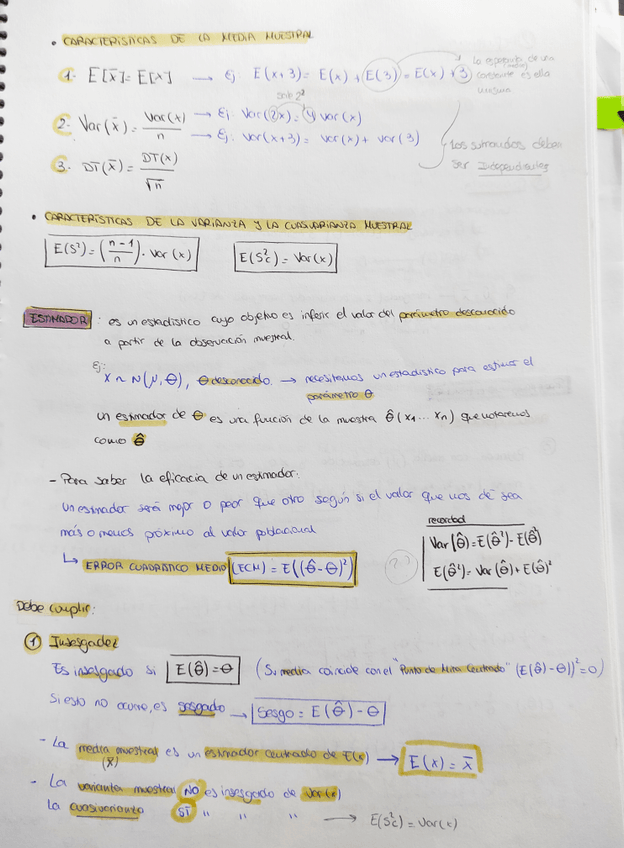 • CARACTERÍSTICAS DE LA MEDIA MUESTRAL
1. E[x̄] = E[x] → Ej: E(x+3) = E(x) + E(3) = E(x) + 3
la esperanza de una constante es ella misma
sale 2²
2. Var(x̄) = Var(x)/n → Ej: Var(2x) = 4 Var(x)
→ Ej: Var(x+3) = Var(x) + Var(3)
Los sumandos deben
ser Independientes
3. DT(x̄) = DT(x)/√n
• CARACTERÍSTICAS DE LA VARIANZA Y LA CUASIVARIANZA MUESTRAL
E(S²) = (n-1/n) · Var(x) E(S²c) = Var(x)
ESTIMADOR : es un estadístico cuyo objetivo es inferir el valor del parámetro desconocido
a partir de la observación muestral.
Ej:
X ~ N(μ, θ), θ desconocido. → necesitamos un estadístico para estimar el
parámetro θ
Un estimador de θ es una función de la muestra θ̂(x₁... xₙ) que notaremos
como θ̂
- Para saber la eficacia de un estimador:
Un estimador será mejor o peor que otro según si el valor que nos dé sea
más o menos próximo al valor poblacional
↳ ERROR CUADRÁTICO MEDIO (ECM) = E((θ̂-θ)²)
recordad
Var(θ̂) = E(θ̂²) - E(θ̂)²
E(θ̂²) = Var(θ̂) + E(θ̂)²
??
Debe cumplir:
① Insesgadez
Es insesgado si E(θ̂) = θ (Su media coincide con el "Punto de Mira Centrado" (E(θ̂) - θ))² = 0)
Si esto no ocurre, es sesgado → Sesgo = E(θ̂) - θ
- La media muestral es un estimador centrado de E(x) → E(x) = x̄
(x̄)
- La varianza muestral NO es insesgado de Var(x)
La cuasivarianza SÍ " " " → E(S²c) = Var(x)